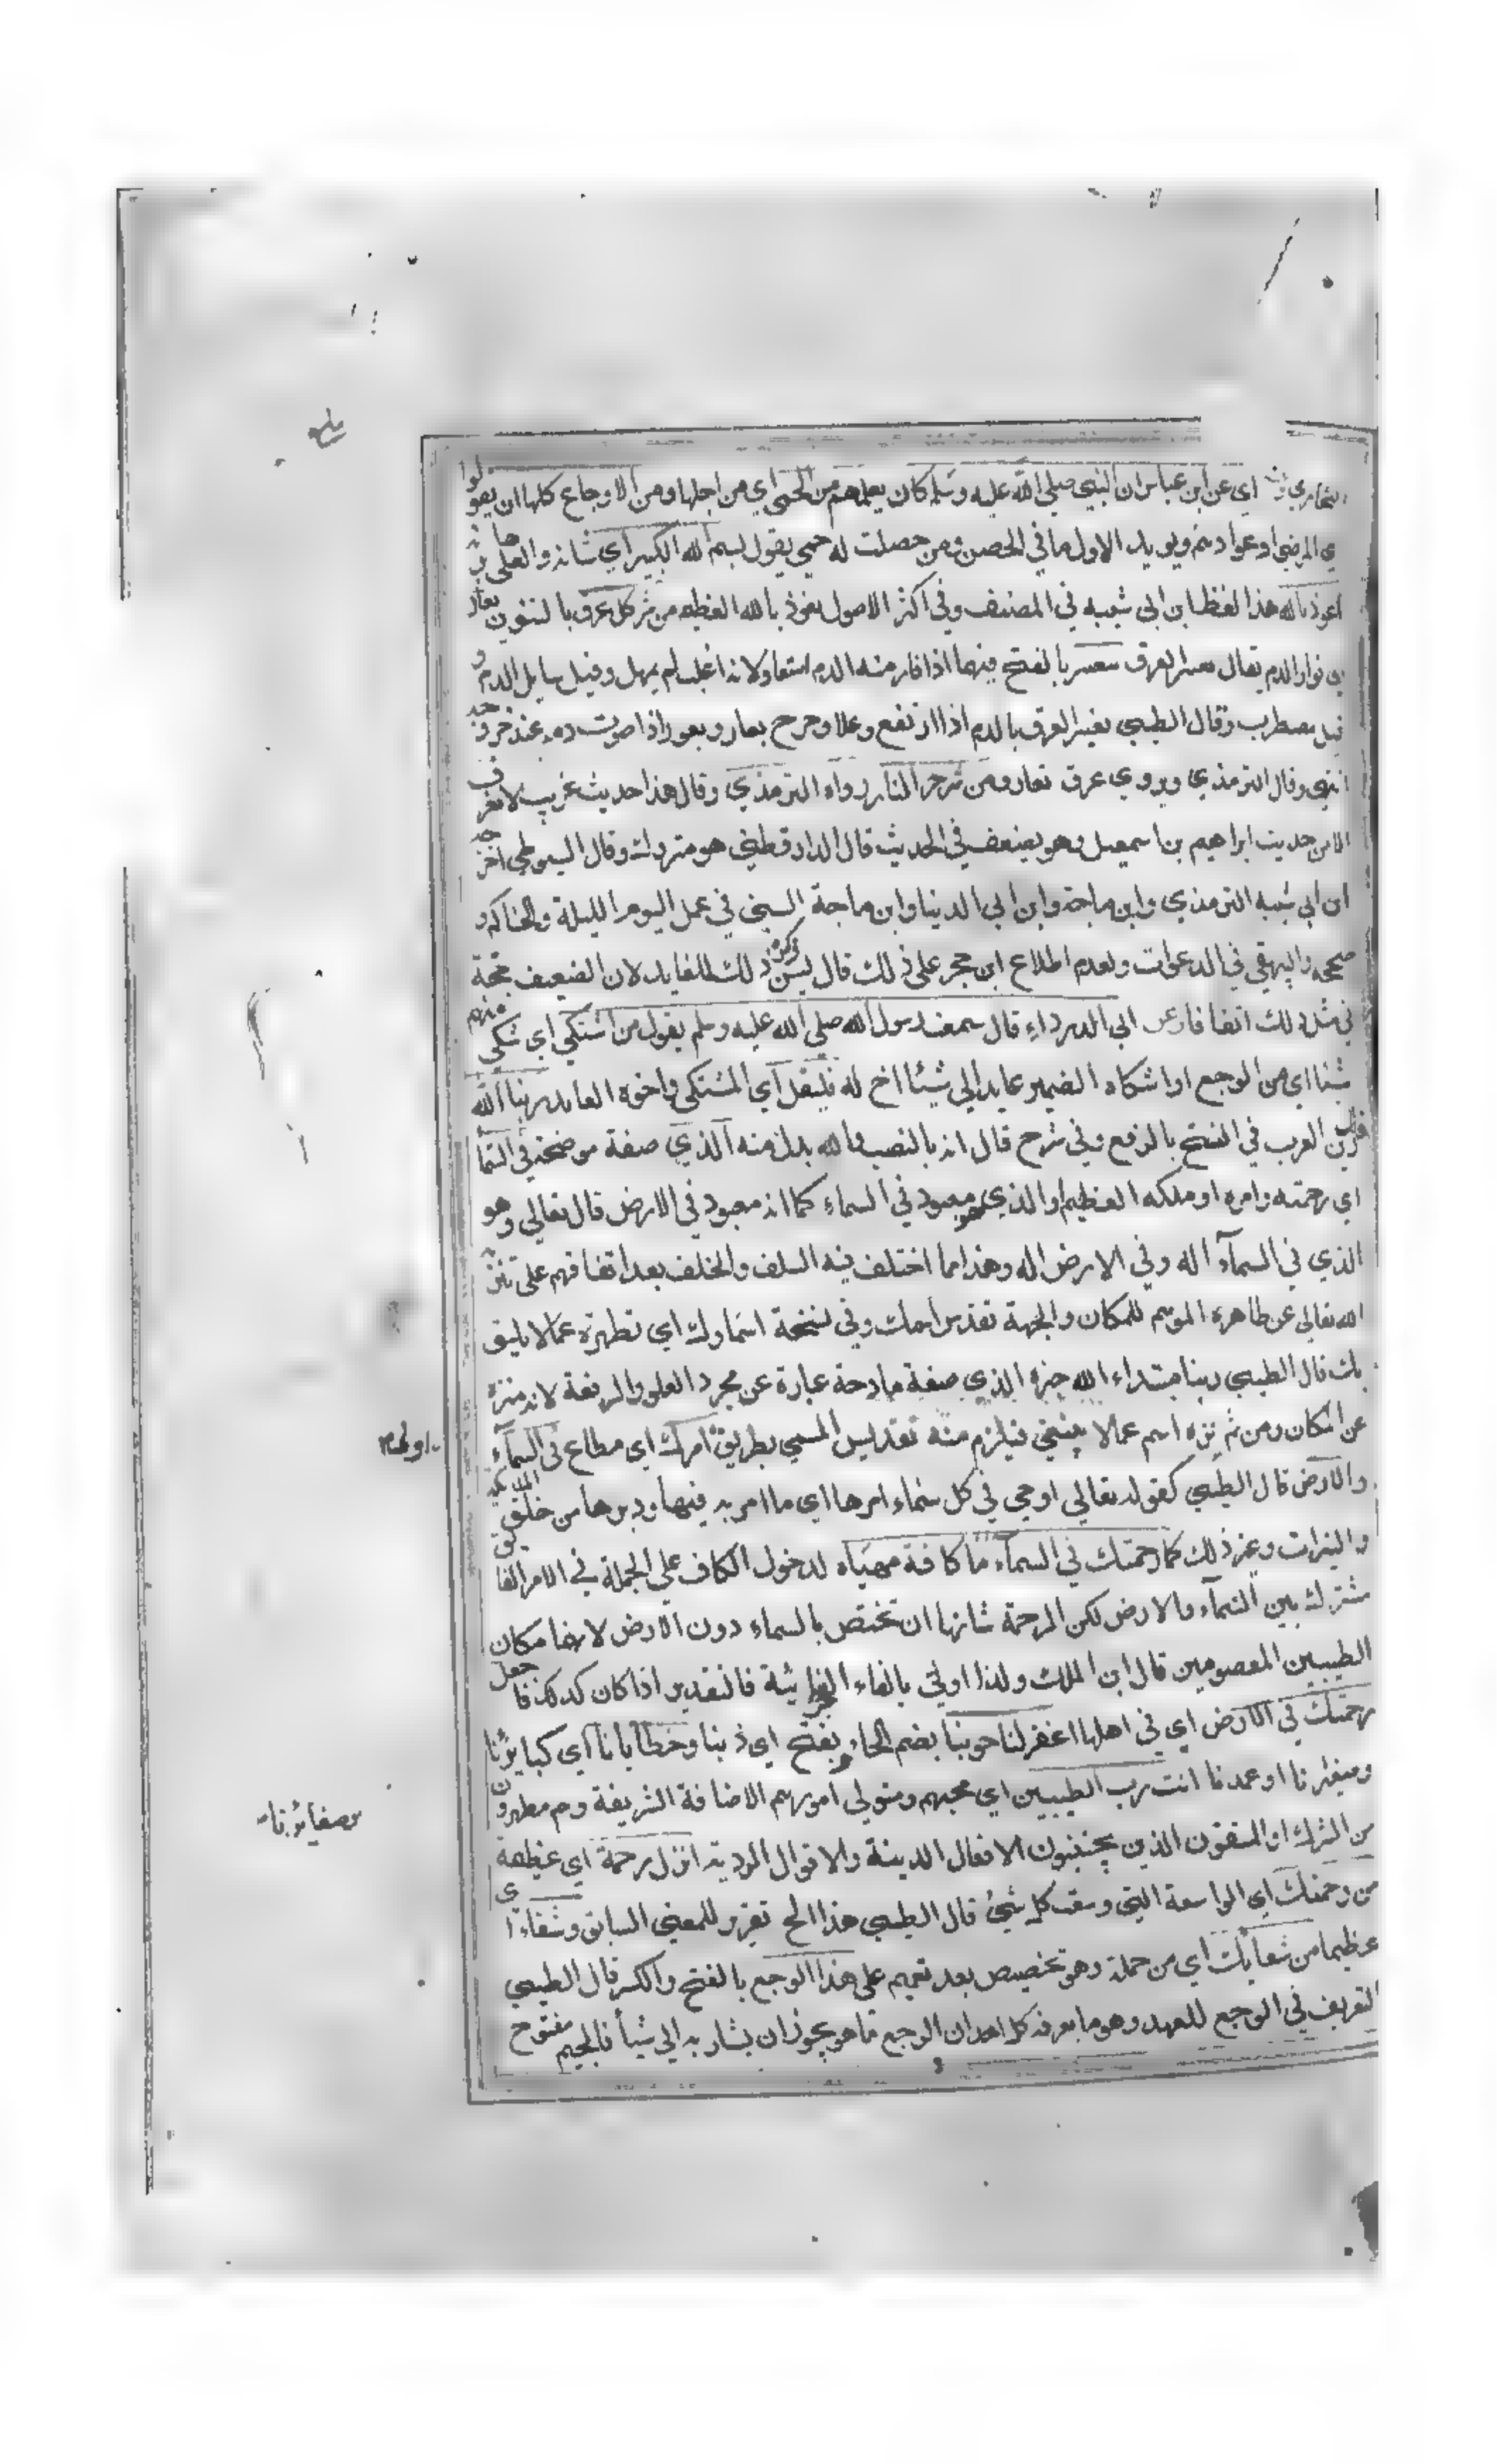 اي عن ابن عباس ان النبي صلي الله عليه وسلم كان يعلمهم من الحمي اي من اجلها ومن الاوجاع كلها ان يقولوا
المرضي او عوادهم ويويد الاول ما في الحصن ومن حصلت له حمي يقول بسم الله الكبير اي شانه والعلي برهانه
اعوذ بالله هذا لفظ ابن ابي شيبه في المصنف وفي اكثر الاصول نعوذ بالله العظيم من شر كل عرق بالتنوين نعار
فوار الدم يقال نعر العرق بالفتح فيهما اذا فار منه الدم استعا ولانه اغلب لم يمهل وقيل سايل الدم و
قيل مضطرب وقال الطيبي نعر العرق بالدم اذا ارتفع وعلا وجرح نعار ونعور اذا صوت دمه عند خروجه
انتهي وقال الترمذي ويروي عرق نعار ومن شر حر النار رواه الترمذي وقال هذا حديث غريب لا نعرف
الا من حديث ابراهيم بن اسمعيل وهو يضعف في الحديث قال الدارقطني هو متروك وقال السيوطي اخرجه
ابن ابي شيبه الترمذي وابن ماجة وابن ابي الدنيا وابن ماجة السني في عمل اليوم الليلة والحاكم و
صححه والبيهقي في الدعوات ولعدم اطلاع ابن حجر علي ذلك قال ليس ذلك للفايد لان الضعيف حجة
في مثل ذلك اتفاقا وعن ابي الدرداء قال سمعت رسول الله صلي الله عليه وسلم يقول من اشتكي اي شكي منهم
شيئا اي من الوجع او اشكاه الضمير عايد الي شيئا اخ له فليقل اي المشتكي واخوه العايد ربنا الله
العرب في النسخ بالرفع وفي شرح قال انه بالنصب والله بدل منه الذي صفة موضحة في السما
اي رحمته وامره او ملكه العظيم او الذي هو معبود في السماء كما انه معبود في الارض قال تعالي وهو
الذي في السمآء اله وفي الارض اله وهذا مما اختلف فيه السلف والخلف بعد اتفاقهم علي تنزيه
الله تعالي عن ظاهره الموهم للمكان والجهة تقدس اسمك وفي نسخة اسماوك اي تطهرة عما لا يليق
بك قال الطيبي ربنا مبتداء الله خبره الذي صفة مادحة عبارة عن مجرد العلو والرفعة لانه منزه
عن المكان ومن ثم نزه اسم عما لا ينبغي فيلزم منه تقديس المسمي بطريق امرك اي مطاع في السمآء
اولي م
والارض قال الطيبي كقوله تعالي اوحي في كل سماء امرها اي ما امر به فيها ودبرها من خلق الملايكة
والنيرات وغير ذلك كما رحمتك في السمآء ما كافة مهياه لدخول الكاف علي الجملة في الامر
مشترك بين السمآء والارض لكن الرحمة شانها ان تختص بالسماء دون الارض لانها مكان
الطيبين المعصومين قال ابن الملك ولذا اوتي بالفاء الجزائية فالتقدير اذا كان كذلك فاجعل
رحمتك في الارض اي في اهلها اغفر لنا حوبنا بضم الحاء وبفتح اي ذنبنا وخطايانا اي كبايرنا
وصغايرنا او عمدنا انت رب الطيبين اي محبهم ومتولي امورهم الاضافة الشريفة وهم مطهرون
وصغايرنا
من الشرك او المتقون الذين يجتنبون الافعال الدينة والاقوال الردية انزل رحمة اي عظيمة
من رحمتك اي الواسعة التي وسعت كل شيئ قال الطيبي هذا الخ تقرير للمعني السابق وشفاءً
عظيما من شفايك اي من جملة وهو تخصيص بعد تعميم علي هذا الوجع بالفتح والكسر قال الطيبي
التعريف في الوجع للعهد وهو ما يعرفه كل احد ان الوجع ما هو يجوز ان يشار به الي شيأ فالجيم مفتوح